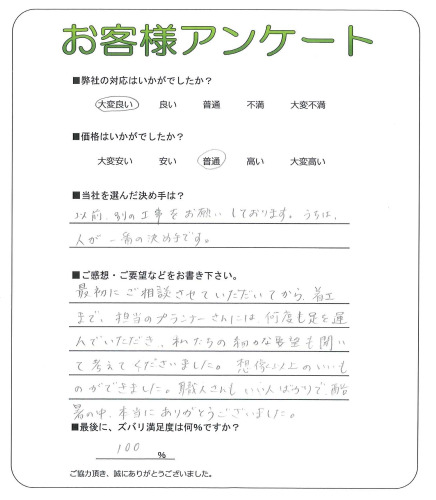 お客様アンケート
■弊社の対応はいかがでしたか？
大変良い 良い 普通 不満 大変不満
■価格はいかがでしたか？
大変安い 安い 普通 高い 大変高い
■当社を選んだ決め手は？
以前、別の工事をお願いしております。うちは、
人が一番の決め手です。
■ご感想・ご要望などをお書き下さい。
最初にご相談させていただいてから、着工
まで、担当のプランナーさんには、何度も足を運
んでいただき、私たちの細かな要望も聞い
て考えてくださいました。想像以上のいいも
のができました。職人さんもいい人ばかりで酷
暑の中、本当にありがとうございました。
■最後に、ズバリ満足度は何%ですか？
100 %
ご協力頂き、誠にありがとうございました。